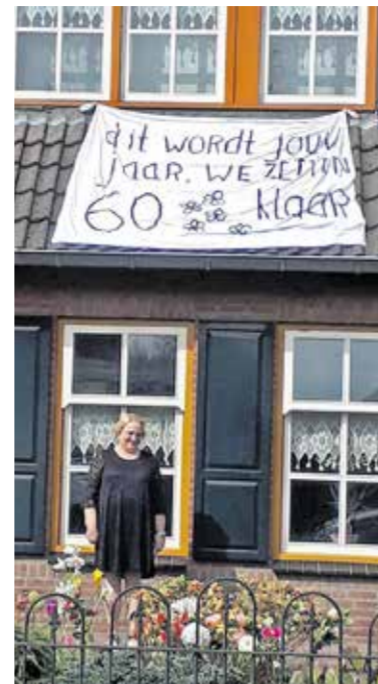 dit wordt jouw
jaar. WE ZETTEN
60 klaar